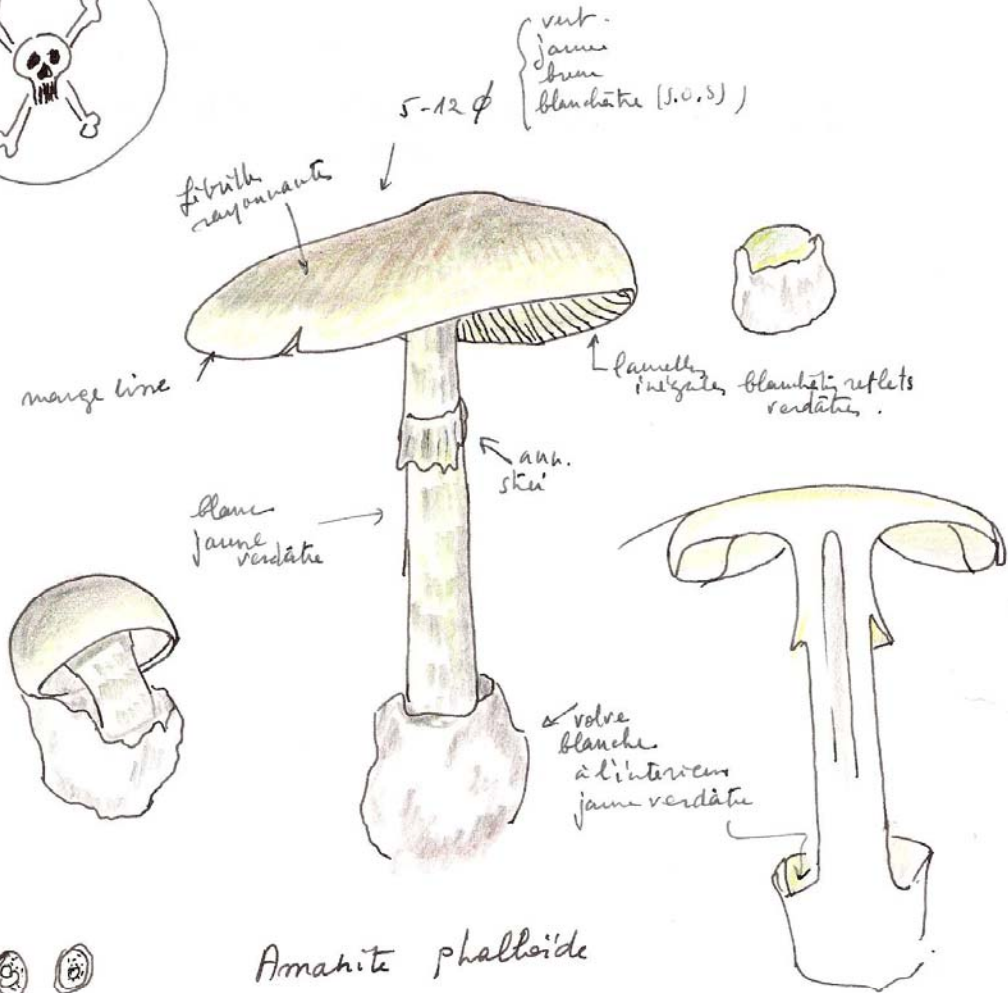 vert.
jaune
brun
blanchâtre (S.O.S)
5-12 ϕ
fibrilles
rayonnantes
marge lisse
lamelles
inégales blanchâtres reflets
verdâtres.
ann.
strié
blanc
jaune
verdâtre
volve
blanche
à l'interieur
jaune verdâtre
Amanite phalloïde